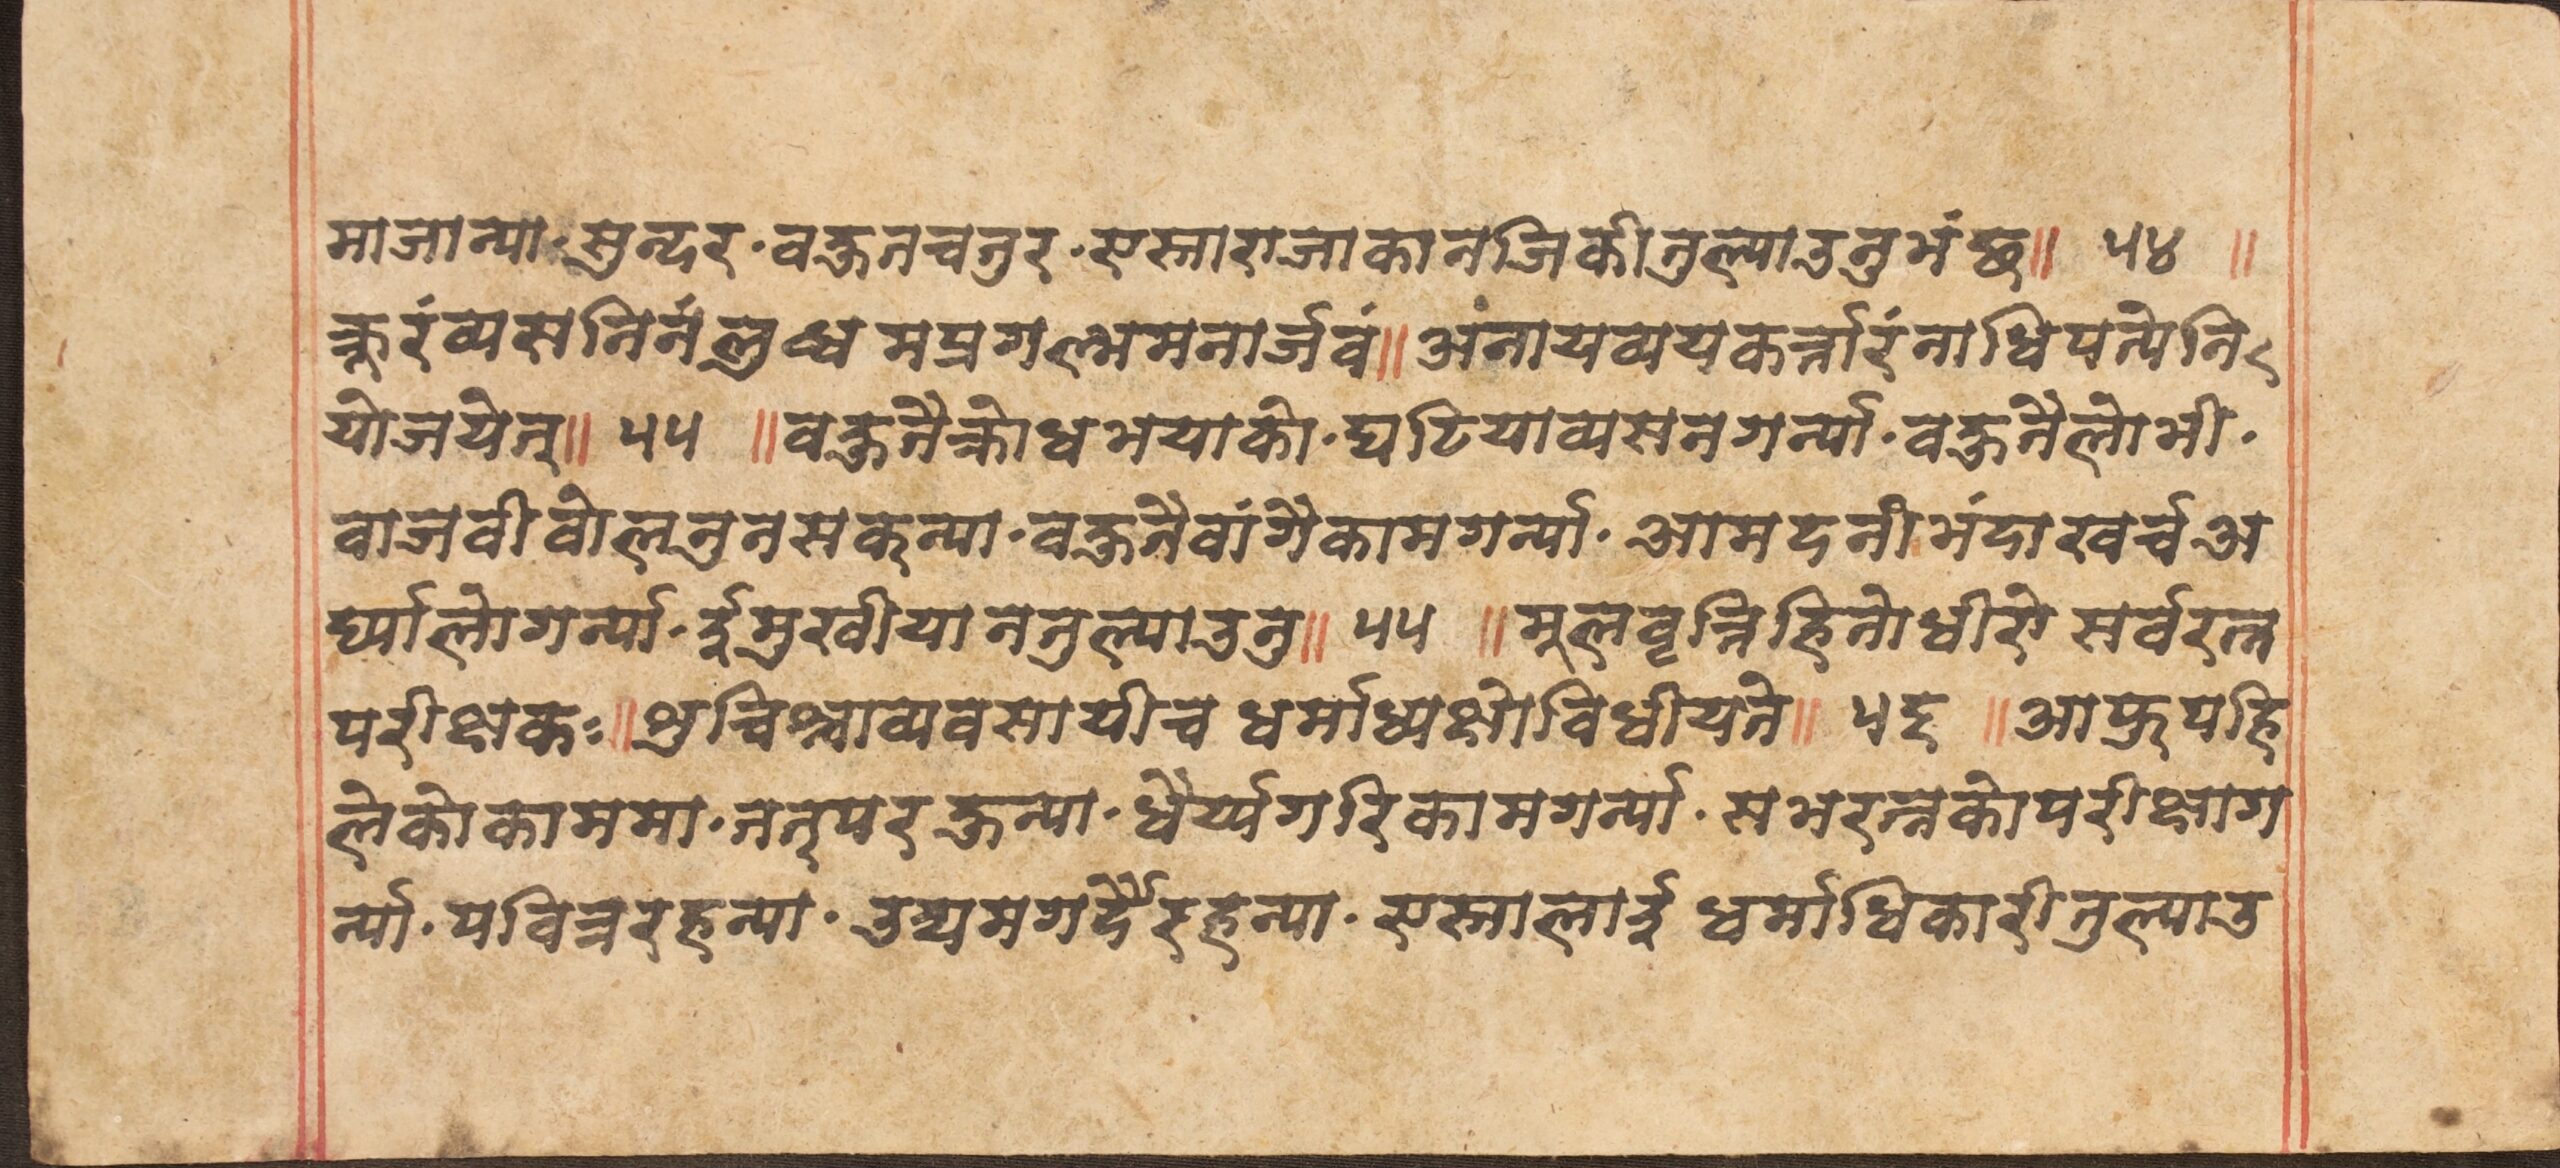 माजान्या· सुन्दर· वहुतचतुर· एस्ताराजाकानजिकीतुल्याउनुभंछ॥ ५४ ॥
क्रूरंव्यसनिनंलुब्धमप्रगल्भमनार्जवं॥ अंनायव्ययकर्त्तारंनाधिपत्येनि
योजयेत्॥ ५५ ॥ वहुतैक्रोधभयाको· घटियाव्यसनगर्न्या· वहुतैलोभी·
वाजवीवोल्नुनसकन्या· वहुतैवांगैकामगर्न्या· आमदनीभंदाखर्च्चअ
र्घ्यालोगर्न्या· ईमुखीयानतुल्याउनु॥ ५५ ॥ मूलवृत्तिहितोधीरो सर्वरत्न
परीक्षकः॥ शुचिश्चाव्यवसायीच धर्माध्यक्षोविधीयते॥ ५६ ॥ आफ्रुपहि
लेकोकाममा· तत्परहुन्या· धैर्य्यगरिकामगर्न्या· सभरत्नकोपरीक्षाग
र्न्या· पवित्ररहन्या· उद्यमगर्दैरहन्या· एस्तालाई धर्माधिकारीतुल्याउ